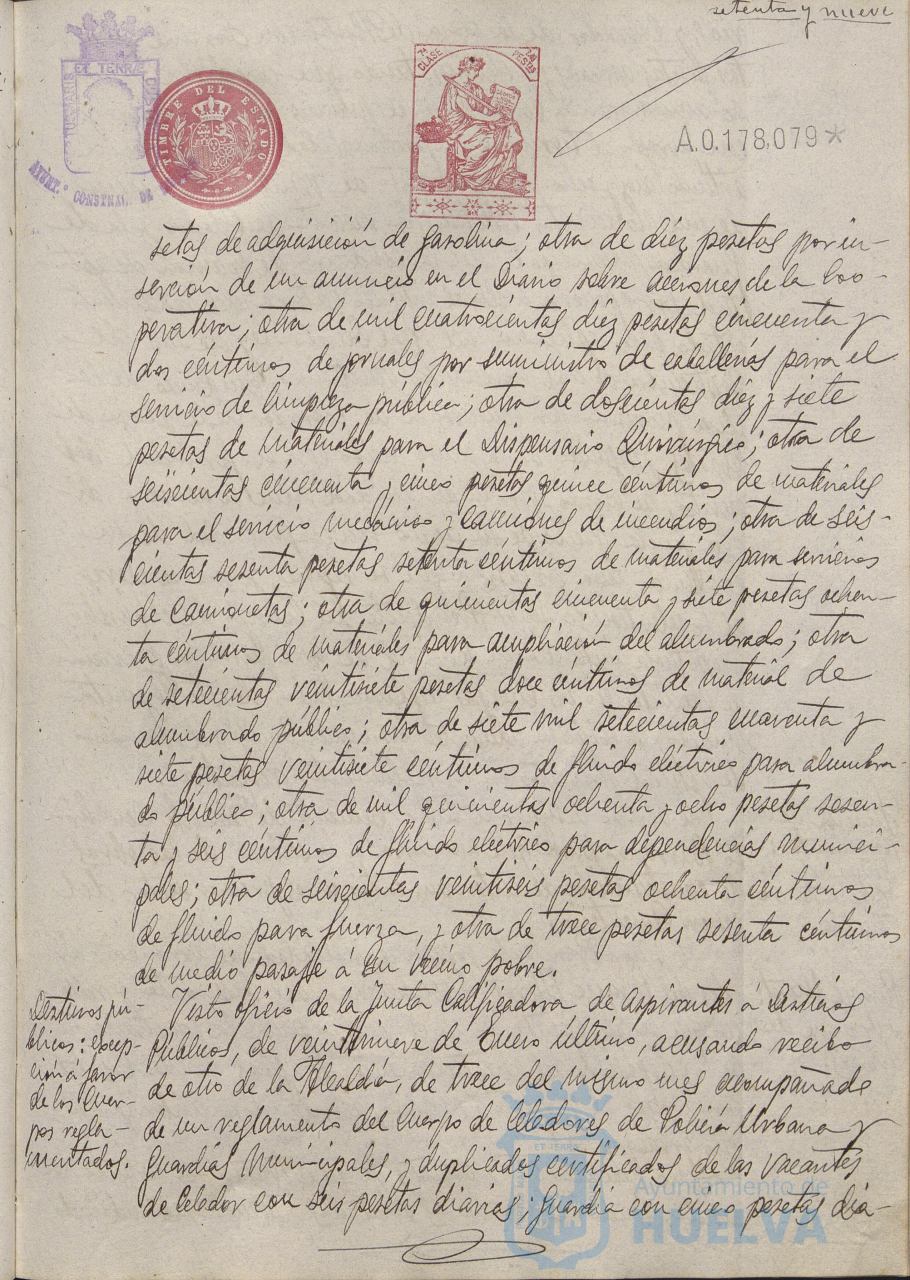 setenta y nueve
PORTUS MARIS ET TERRÆ CUSTODIA
AYUNT.º CONSTNAL. DE
TIMBRE DEL ESTADO
7ª CLASE
PESTAS
A.0.178,079*
setas de adquisición de gasolina; otra de diéz pesetas por in-
serción de un anuncio en el Diario sobre acciones de la Coo-
perativa; otra de mil cuatrocientas diéz pesetas cincuenta y
dos céntimos de jornales por suministro de caballerías para el
servicio de limpieza pública; otra de doscientas diéz y siete
pesetas de materiales para el Dispensario Quirúrgico; otra de
seiscientas cincuenta y cinco pesetas quince céntimos de materiales
para el servicio mecánico y camiones de incendios; otra de seis-
cientas sesenta pesetas setenta céntimos de materiales para servicios
de camionetas; otra de quinientas cincuenta y siete pesetas ochen-
ta céntimos de materiales para ampliación del alumbrado; otra
de setecientas veintisiete pesetas doce céntimos de material de
alumbrado público; otra de siete mil setecientas cuarenta y
siete pesetas veintisiete céntimos de fluido eléctrico para alumbra-
do público; otra de mil quinientas ochenta y ocho pesetas sesen-
ta y seis céntimos de fluido eléctrico para dependencias munici-
pales; otra de seiscientas veintiséis pesetas ochenta céntimos
de fluido para fuerza, y otra de trece pesetas sesenta céntimos
de medio pasaje á un vecino pobre.
Destinos pú-
blicos: excep-
ción á favor
de los Cuer-
pos regla-
mentados.
Visto oficio de la Junta Calificadora de Aspirantes á Destinos
Públicos, de veintinueve de Enero último, acusando recibo
de otro de la Alcaldía, de trece del mismo mes acompañado
de un reglamento del Cuerpo de Celadores de Policía Urbana y
Guardias Municipales, y duplicados certificados de las vacantes
de Celador con seis pesetas diarias; Guardia con cinco pesetas dia-
Ayuntamiento de
HUELVA